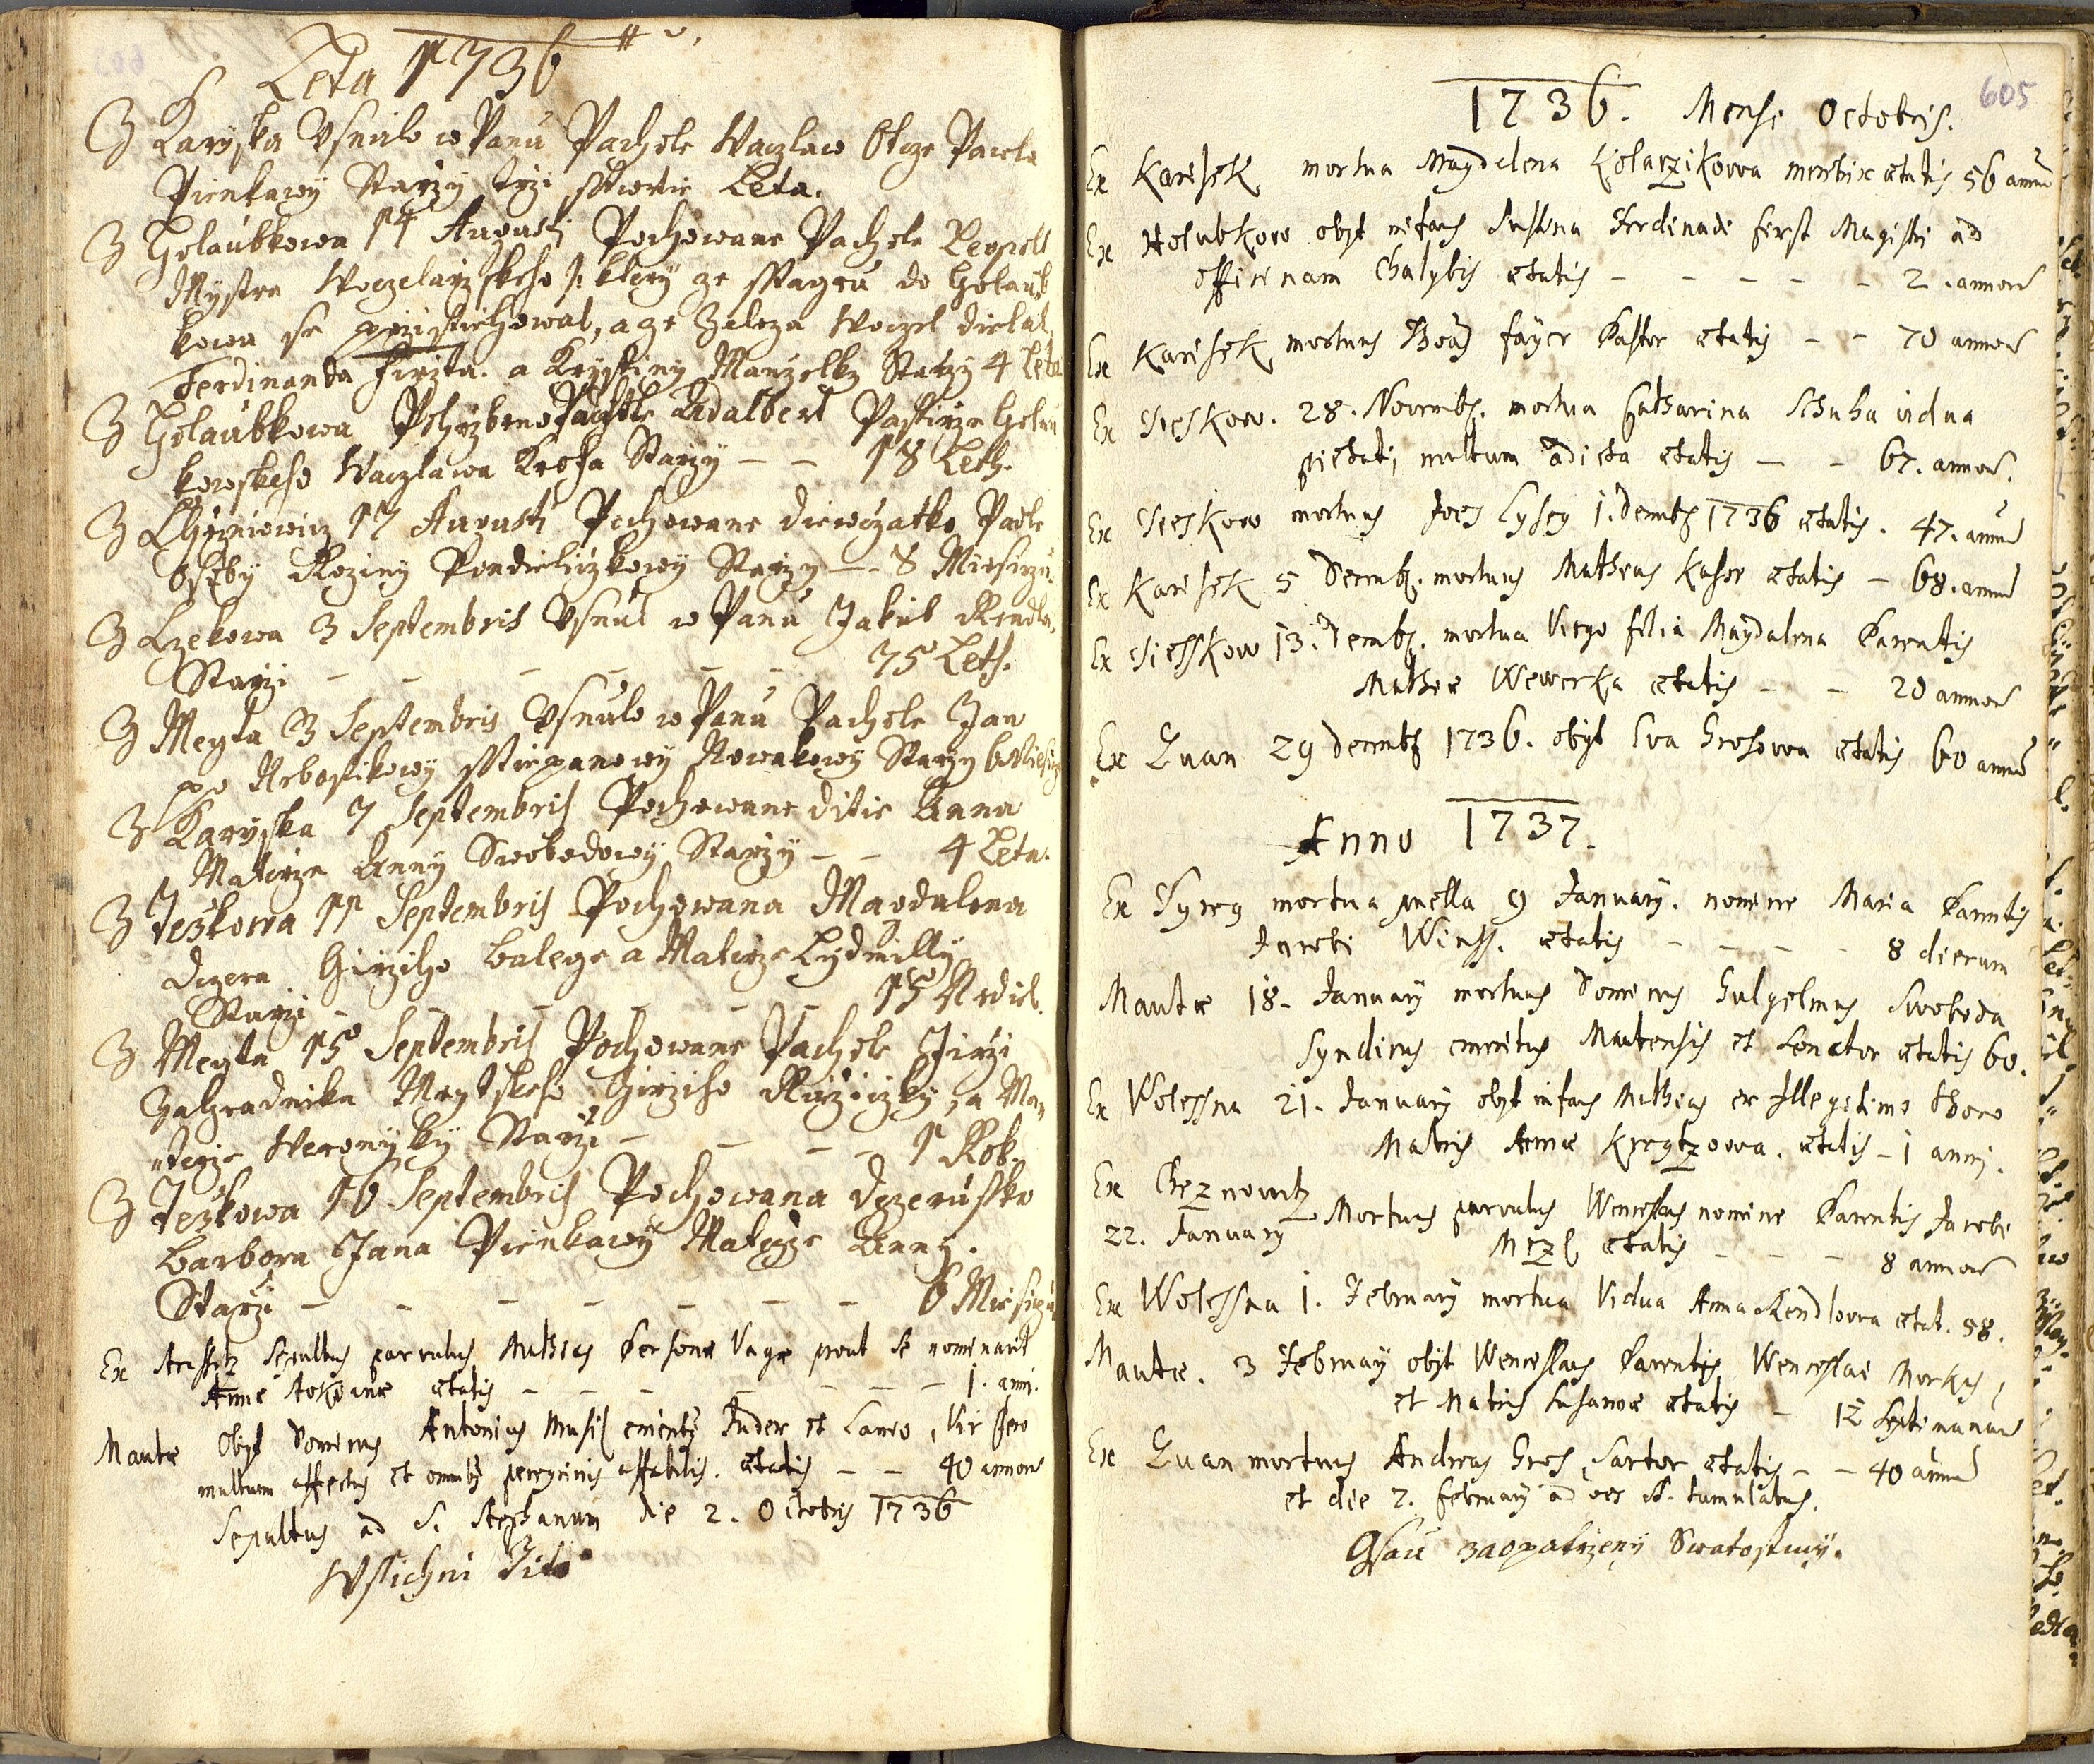 Leta 1736
Z Karyska Usnulo w Panu Pachole Waczlaw Otcze Pawla
Pienkawy Starzy trzi sstwrtie Leta.
Z Holaubkowa 14 Augusti Pochowane Pachole Leopolt
Mystra Woczelarzskeho ktery ze do Holaub
kowa se przistiehowal, a ze Zeleza Woczel dielal,
Ferdinanda Firzta. a Krystiny Manzelky Starzy 4 Leta
Z Holaubkowa Pohrzbeno Pachole Adalbert Pastirze Holau
kowskeho Waczlawa Krofa Starzy – – 18 Leth.
Z 17 Augusti Pochowane diewczatko Podle
Roziny Starzy – 8 Miesyczu
Z Czekowa 3 Septembris Usnul w Panu Jakub Rendla,
Starzi – – – – – – 75 Leth.
Z Meyta 3 Septembris Usnulo w Panu Pachole Jan
po Nebostikowy Sstiepanowy Nowakowy Starzy 6 Miesycz
Z Karyska 7 Septembris Pochowane ditie Anna
Materze Anny Swobodowy Starzy – – 4 Leta.
Z Teskowa 11 Septembris Pochowana Magdalena
dczera Girziho Balege a Materze Lydmilly
Starzi – – – – – – 15 Nediel.
Z Meyta 15 Septembris Pochowane Pachole Jirzi
Zahradnika Meytskeho Girziho Ruziczky, a Ma
terze Weronyky Starzi – – – – 1 Rok.
Z Teskowa 18 Septembris Pochowana dczeruska
Barbora Jana Pienkawy Materze Anny.
Starzi – – – – – – – 6 Miesyczu
Ex sepultus parvulus Mathias Personæ Vagæ prout se nominavit
Annæ ætatis – – – – – – – 1. anni.
Mautæ Obyt Dominus Antonius Musil Judex et Lanio, Vir
multum affectus et omnibus peregrinis affabilis. ætatis – – 40 annorum
Sepultus ad S. Stephanum die 2. Octobris 1736
Wsichni Tito
605
1736. Mense Octobris.
Ex Karisek mortua Magdalena Kolarzikowa ætatis 56 annorum
Ex Holubkow obyt infans Ferdinadi first Magistri ad
officinam Chalybis ætatis – – – – – 2. annorum
Ex Karisek mortuus fayer Pastor ætatis – – 70 annorum
Ex Tieskow. 28. Novemb. mortua Catharina Schuha vidua
pietati multum adicta ætatis – – 67. annorum.
Ex Tieskow mortuus Joes Lysey 1. Decembris 1736 ætatis. 47. annorum
Ex Karisek 5 Decemb. mortuus Matheus Kasor ætatis – 68. annorum
Ex Tiesskow 13. Decemb. mortua Virgo filia Magdalena Parentis
Mathæi Wewerka ætatis – – 20 annorum
Ex Luan 29 Decembris 1736. obyt Eva Grosowa ætatis 60 annorum
Anno 1737.
Ex Syrey mortua puella 9 January. nomine Maria Parentis
Jacobi Winss. ætatis – – – – 8 dierum
Mautæ 18. January mortuus Dominus Gulyelmus Swoboda
Syndicus emeritus Mautensis et Senator ætatis 60.
Ex Wolessna 21. January obyt infans Mathias ex Illegitimo thoro
Matris Annæ Kreytzowa. ætatis – 1 anni.
Ex Cheznowitz Mortuus parvulus Wenceslaus nomine Parentis Jacobi
22. January ætatis – – – 8 annorum
Ex Wolessna 1. February mortua Vidua Anna Rendlowa ætat. 58.
Mautæ. 3 February obyt Wenceslaus Parentis Wenceslai Morkus,
et Matris Susannæ ætatis – 12 Septimanarum
Ex Luan mortuus Andreas Gros, Sartor ætatis – – 40 annorum
et die 7. february ad tumulatus.
Gsau zaopatrzeny Swatostmy.